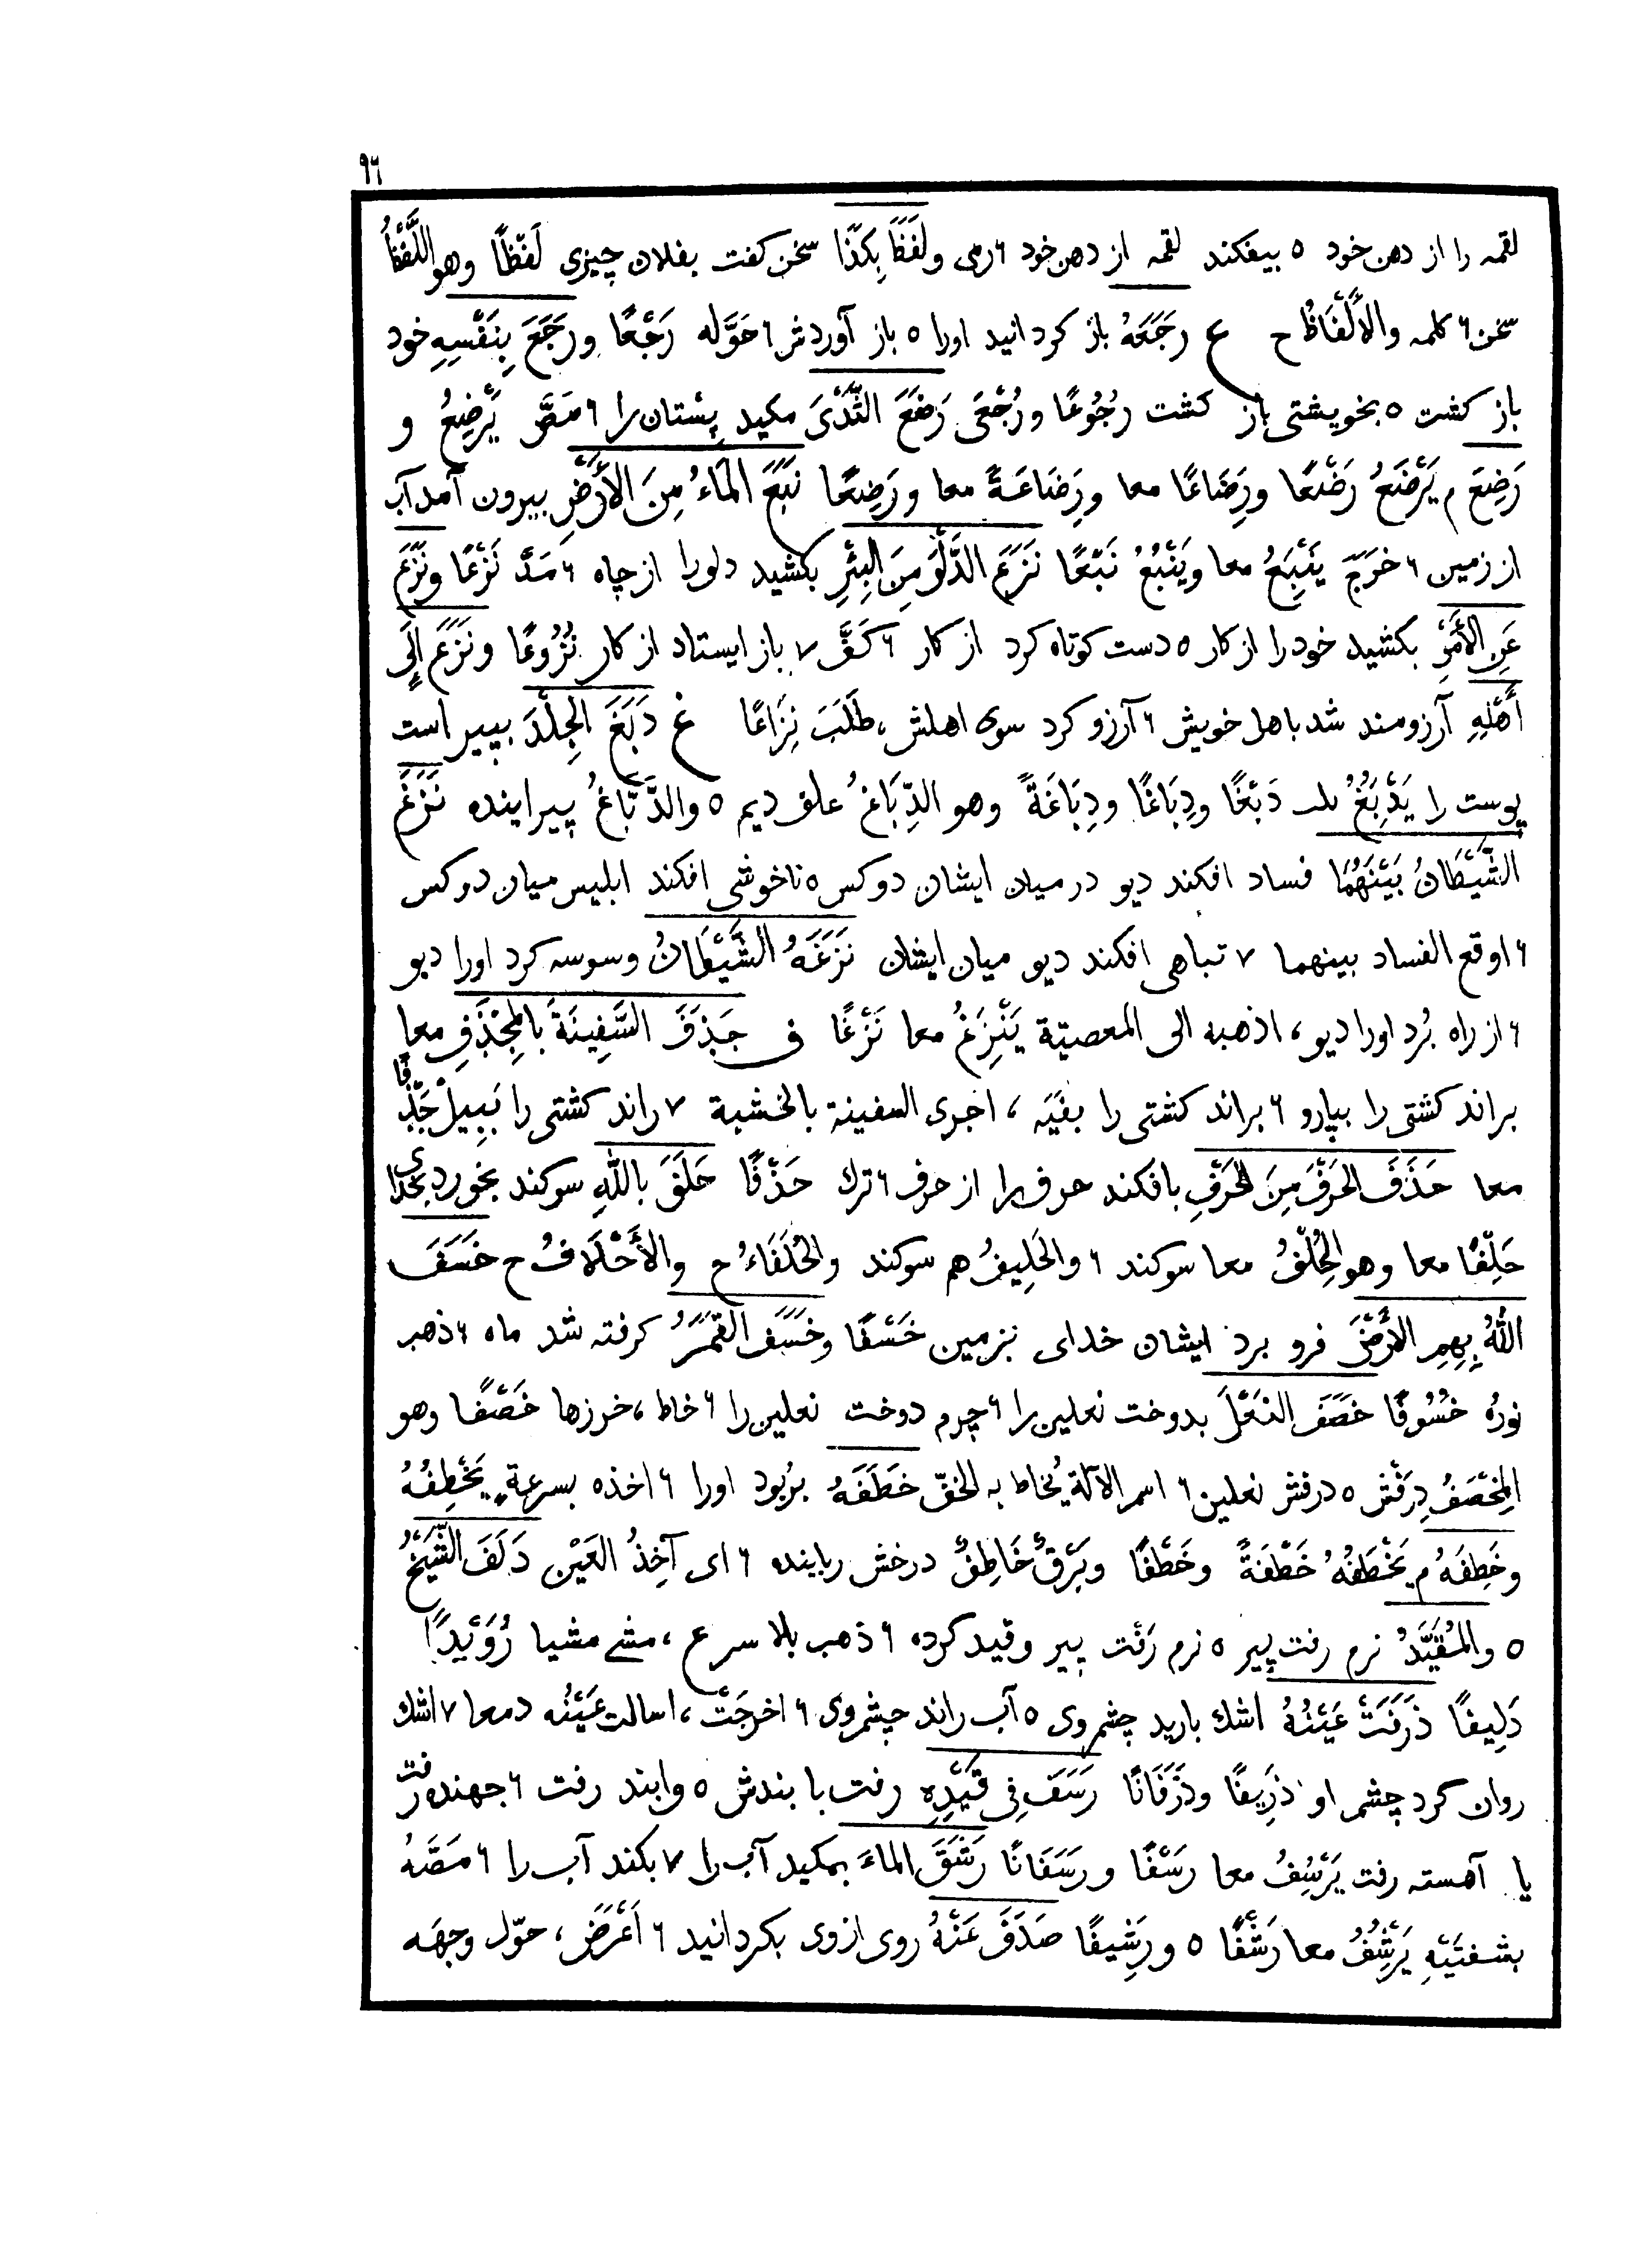 ٩٦
لقمه را از دهن خود ٥ بیفکند لقمه از دهن خود ٦ رمی ولَفَظَ بِكَذَا سخن کفت بفلان چیزی لَفْظًا وهو اللَّفْظُ
سخن ٦ کلمه والأَلْفَاظُ ح ع رَجَعَهُ باز کردانید اورا ٥ باز آوردش ٦ حَوَّله رَجْعًا ورَجَعَ بِنَفْسِهِ خود
باز کشت ٥ بخویشتی باز کشت رجُوعًا ورُجْعَى رَضَعَ الثَّدْىَ مکید پستان را ٦ مَصَّ يَرْضِعُ و
رَضِعَ م يَرْضَعُ رَضْعًا ورِضَاعًا معا ورِضَاعَةً معا ورَضِعًا نَبَعَ المَاءُ مِنَ الأَرْضِ بیرون آمد آب
از زمین ٦ خَرَجَ يَنْبِعُ معا ويَنْبُعُ نَبْعًا نَزَعَ الدَّلْوَ مِنَ البِئْرِ بکشید دلورا از چاه ٦ مَدَّ نَزْعًا ونَزَعَ
عَنِ الأَمْرِ بکشید خود را از کار ٥ دست کوتاه کرد از کار ٦ كَفَّ ٧ باز ایستاد از کار نُزُوعًا ونَزَعَ إِلَى
أَهْلِهِ آرزومند شد باهل خویش ٦ آرزو کرد سوی اهلش، طَلَبَ نِزَاعًا غ دَبَغَ الجِلْدَ بپیراست
پوست را يَدْبُغُ دَبْغًا ودِبَاغًا ودِبَاغَةً وهو الدِّبَاغُ علف دیم ٥ والدَّبَّاغُ پیراینده نَزَغَ
الشَّيْطَانُ بَيْنَهُمَا فساد افکند دیو در میان ایشان دوکس ٥ ناخوشی افکند ابلیس میان دو کس
٦ اوقع الفساد بينهما ٧ تباهی افکند دیو میان ایشان نَزَغَهُ الشَّيْطَانُ وسوسه کرد اورا دیو
٦ از راه بُرد اورا دیو، اذهبه الى المعصية يَنْزَغُ معا نَزْغًا ف جَذَفَ السَّفِينَةَ بِالمِجْذَفِ معا
براند کشتی را بپارو ٦ براند کشتی را بفَیَه، اجرى السفينة بالخشبة ٧ راند کشتی را ببیل جَذْفًا
معا حَذَفَ الحَرْفَ مِنَ الحَرْفِ بافکند حرف را از حرف ٦ ترك حَذْفًا حَلَفَ بِاللهِ سوکند بخورد بخدای
حَلِفًا معا وهو الحِلْفُ معا سوکند ٦ والحَلِيفُ هم سوکند والحُلَفَاءُ ح والأَحْلَافُ ح خَسَفَ
اللهُ بِهِمِ الأَرْضَ فرو برد ایشان خدای بزمین خَسْفًا وخَسَفَ القَمَرُ کرفته شد ماه ٦ ذهب
نورُه خُسُوفًا خصَفَ النَعْلَ بدوخت نعلین را ٦ چرم دوخت نعلین را ٦ خاط، خرزها خَصْفًا وهو
المِخْصَفُ دِرَفْش ٥ درفش نعلین ٦ اسم الآلة يُخاط به الخفّ خَطَفَهُ برُبود اورا ٦ اخذه بسرعةٍ يَخْطِفُهُ
وخَطِفَهُ م يَخْطَفُهُ خَطْفَةً وخَطْفًا وبَرْقٌ خَاطِفٌ درخش رباینده ٦ ای آخِذُ العَيْن دَلَفَ الشَّيْخُ
٥ والمُقَيَّدُ نرم رفت پیر ٥ نرم رَفْت پیر وقید کرده ٦ ذهب بلا سرع، مشے مشیا رُوَيْدًا
دَلِيفًا ذَرَفَتْ عَيْنُهُ اشك بارید چشم وی ٥ آب راند چشم وی ٦ اخرجَتْ، اسالت عَيْنُه دمعا ٧ اشك
روان کرد چشم او ذَرِيفًا وذَرَفَانًا رَسَفَ فِي قَيْدِهِ رفت با بندش ٥ وابند رفت ٦ جهنده رفت
یا آهسته رفت يَرْسُفُ معا رَسْفًا ورَسَفَانًا رَشَفَ الماءَ بمکید آب را ٧ بکند آب را ٦ مَصَّهُ
بشفتَيْهِ يَرْشُفُ معا رَشْفًا ٥ ورَشِيفًا صَدَفَ عَنْهُ روی ازوی بکردانید ٦ أَعْرَضَ، حوّل وجهَه